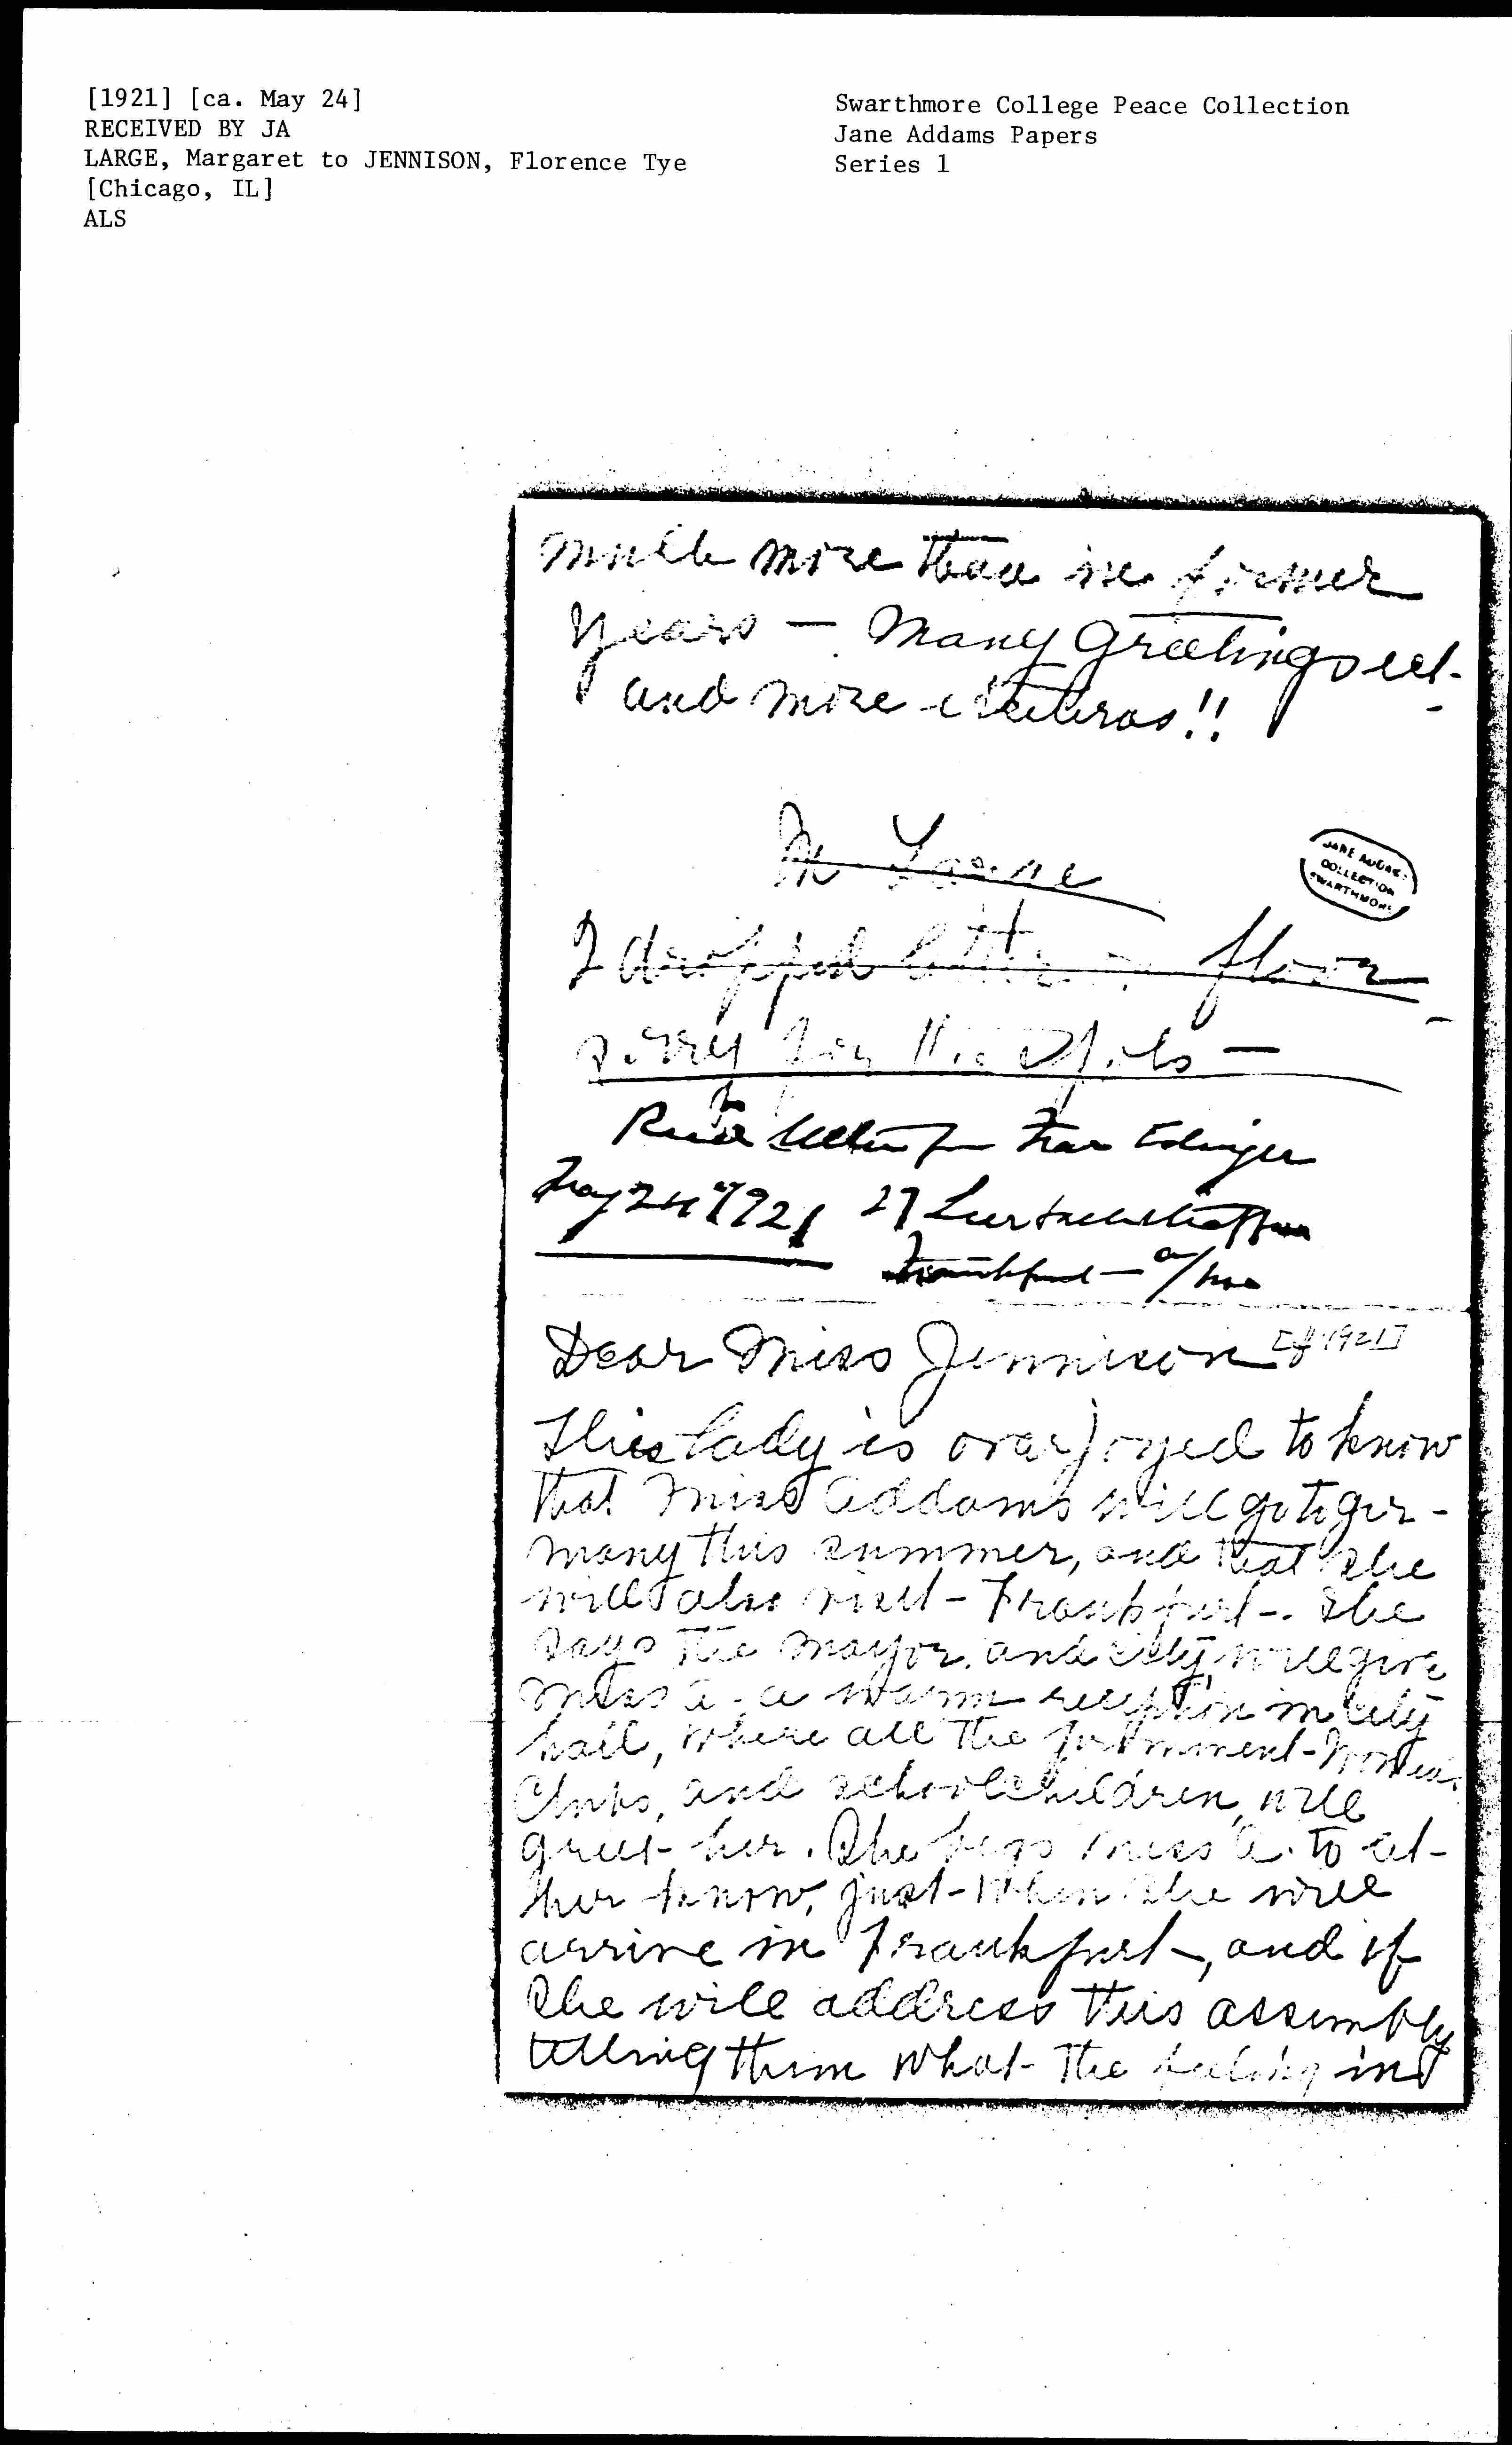 [1921] [ca. May 24]
RECEIVED BY JA
LARGE, Margaret to JENNISON, Florence Tye
[Chicago, IL]
ALS
Swarthmore College Peace Collection
Jane Addams Papers
Series 1
much more than in former
years — Many Greetings ect.
and more etceteras!!
M
I dropped letter on floor
sorry for the spots —
letter Frau Edinger
May 24th 1921 27
Frankfurt — a/M
JANE ADDAMS
COLLECTION
SWARTHMORE
Dear Miss Jennison [1921]
This Lady is overjoyed to know
that Miss Addams will go to Ger-
many this summer, and that she
will also visit - Frankfurt -. She
says the mayor and city, will give
Miss A. a warm reception in City
hall, where all the prominent - Women
Clubs, and schoolchildren, will
greet - her. She begs Miss A. to let -
her know, just - when she will
arrive in Frankfurt -, and if
she will address this assembly
telling them what - the feeling in